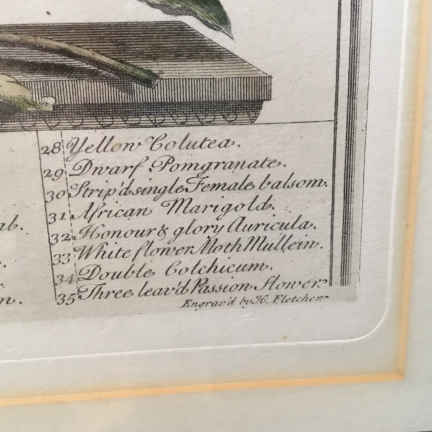 28 Yellow Colutea.
29 Dwarf Pomgranate.
30 Strip'd single Female balsom.
31 African Marigold.
ab.
32 Honour & glory Auricula.
33 White flower Moth Mullein.
34 Double Colchicum.
35 Three leav'd Passion flower
Engrav'd by H. Fletcher